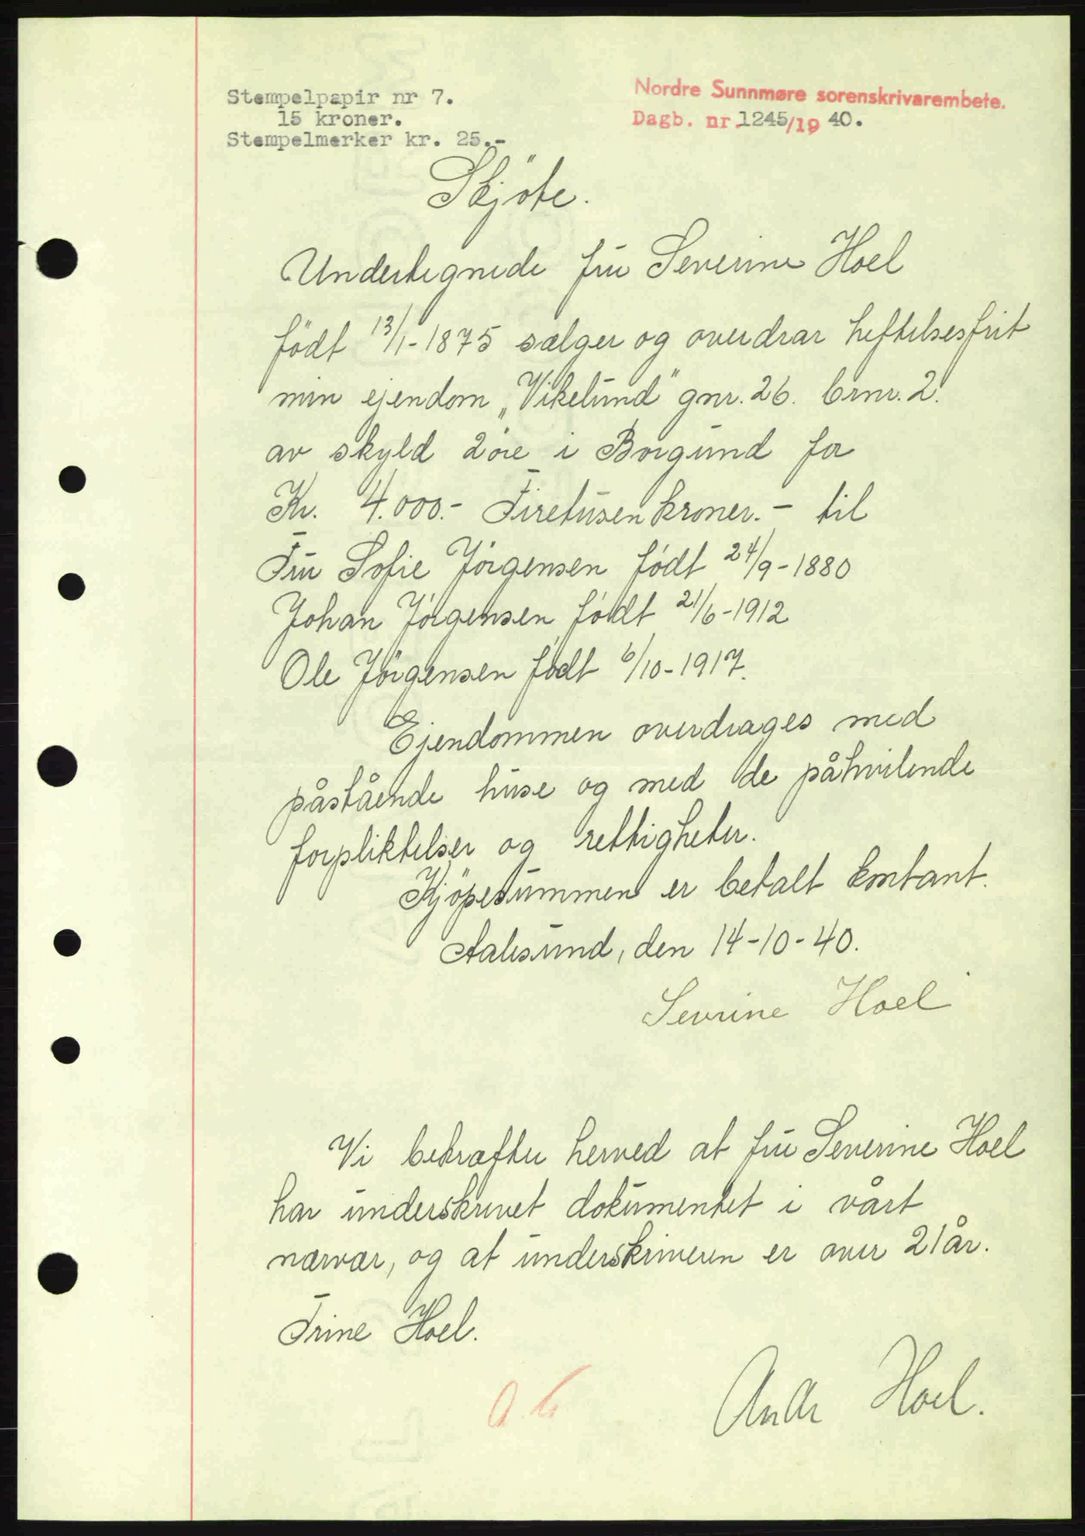 Stempelpapir nr 7.
15 kroner.
Stempelmerker kr. 25.-
Nordre Sunnmøre sorenskrivarembete.
Dagb. nr. 1245/19 40.
Skjöte.
Undertegnede fru Severine Hoel
født 13/1-1875 sælger og overdrar heftelsesfrit
min ejendom „Vikelund" gnr. 26. brnr. 2.
av skyld 2 öre i Borgund for
Kr. 4.000.- Firetusen kroner. - til
Fru Sofie Jörgensen født 24/9-1880
Johan Jörgensen født 21/6-1912
Ole Jörgensen født 6/10-1917.
Ejendommen overdrages med
påstående huse og med de påhvilende
forpliktelser og rettigheter.
Kjöpesummen er betalt kontant.
Aalesund, den 14-10-40.
Sevrine Hoel
Vi bekræfter herved at fru Severine Hoel
har underskrevet dokumentet i vårt
nærvær, og at underskriveren er over 21 år.
Trine Hoel.
Hoel.